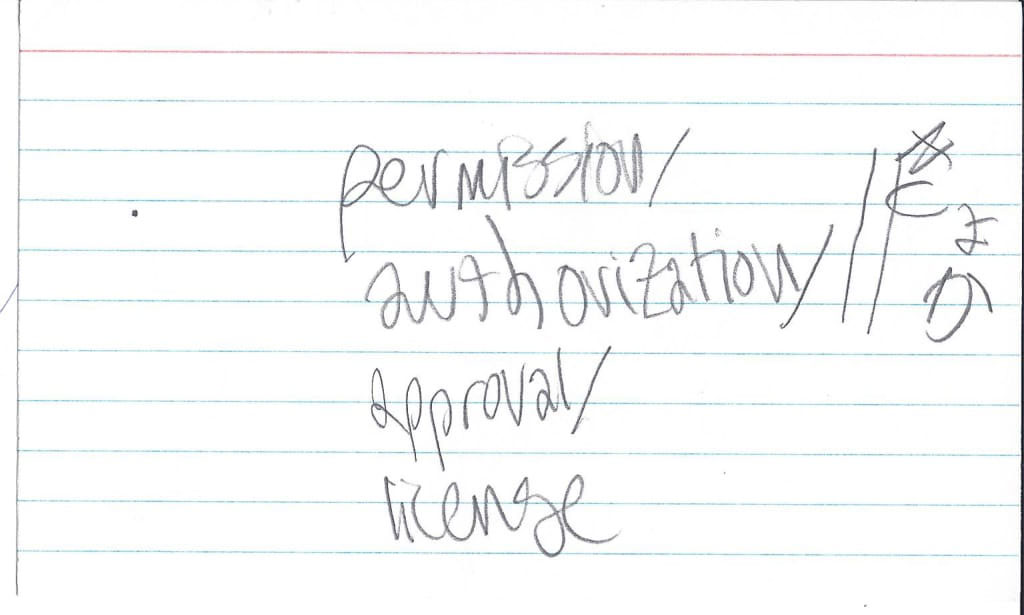 permission/
authorization/
approval/
license
// きょか